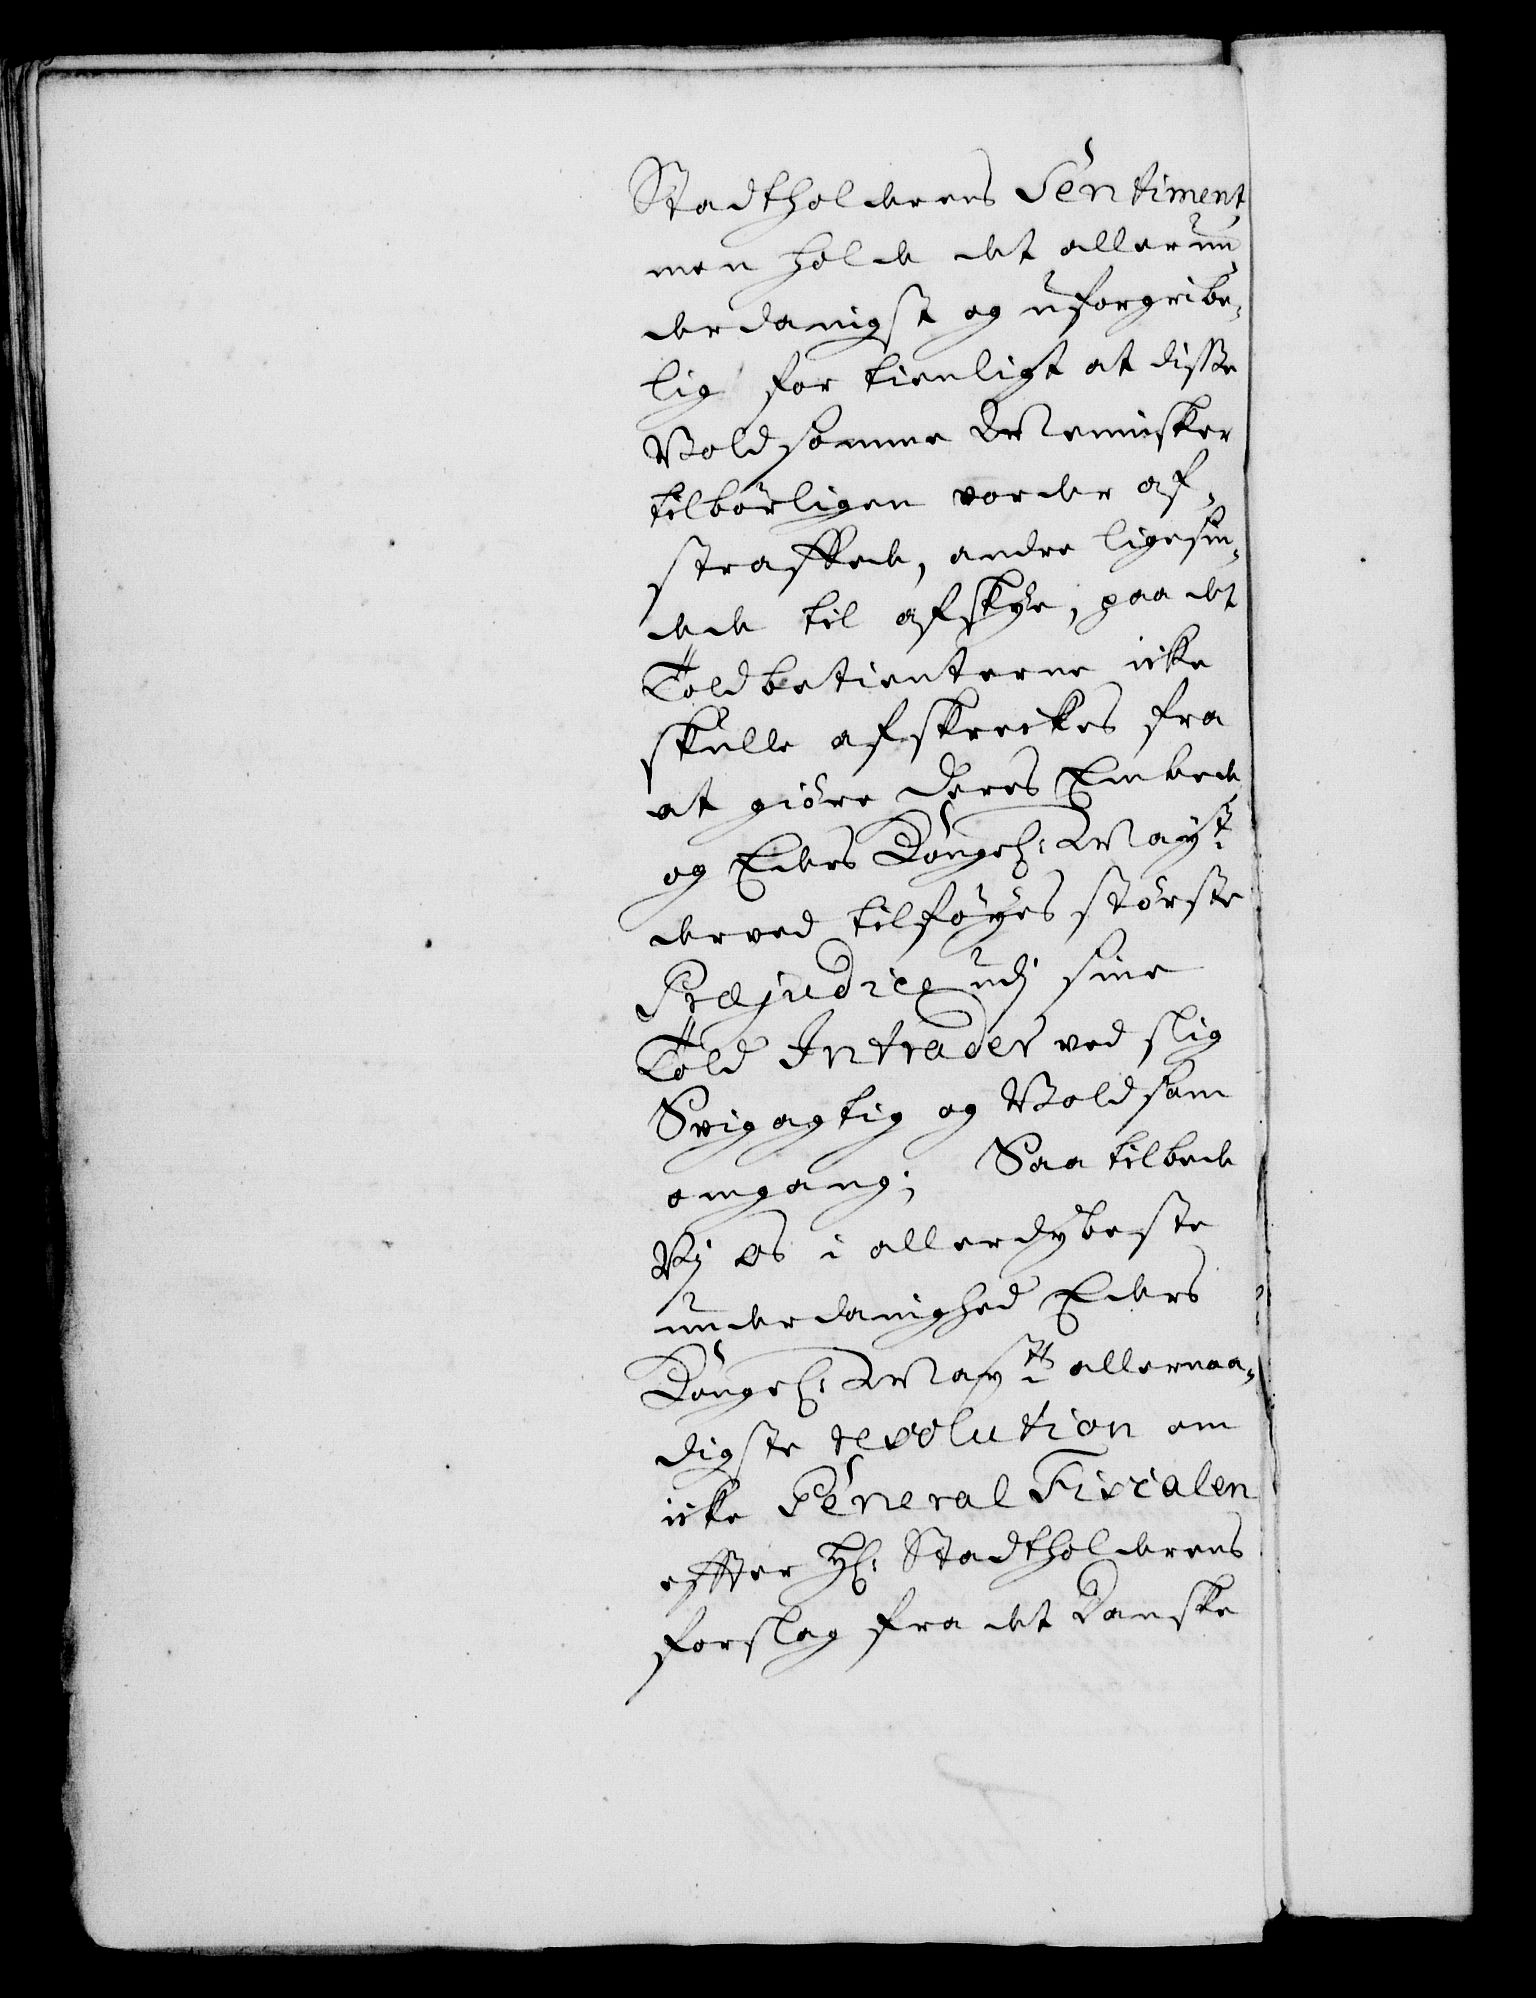 Stadtholderens Sentiment
men holde det allerun¬
derdanigst og uforgribe¬
lig for tienligt at disse
Voldsomme Mennisker
tilbörligen vorder af¬
straffede, andre ligesin¬
dede til afskye, paa det
Toldbetienterne icke
skulle afskreckes fra
at giöre deres Embede
og Eders Kongel: Mayt:
derved tilföyes störste
Præjudice udj sine
Told Intrader ved slig
Svigagtig og Voldsom
omgang; Saa tilbede
Vj os i allerdybeste
underdanighed Eders
Kongel: Maytts allernaa¬
digste resolution om
icke General Fiscalen
effter H: Stadtholderens
forslag fra det Danske